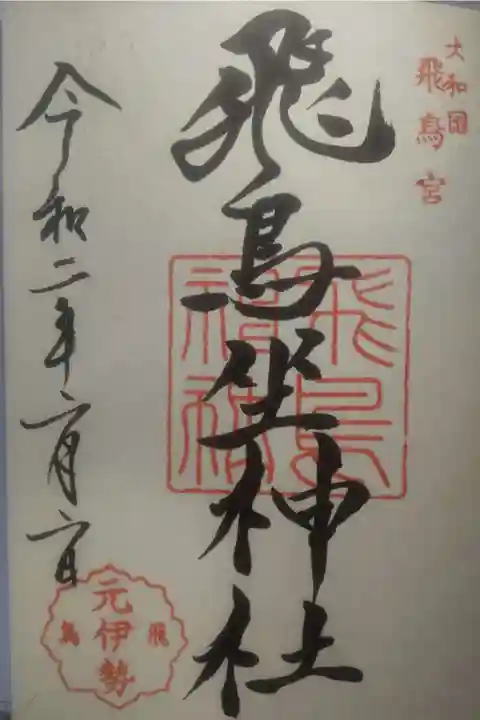 大和国
飛鳥宮
飛鳥坐神社
飛鳥
神社
令和二年六月六日
元伊勢
飛鳥